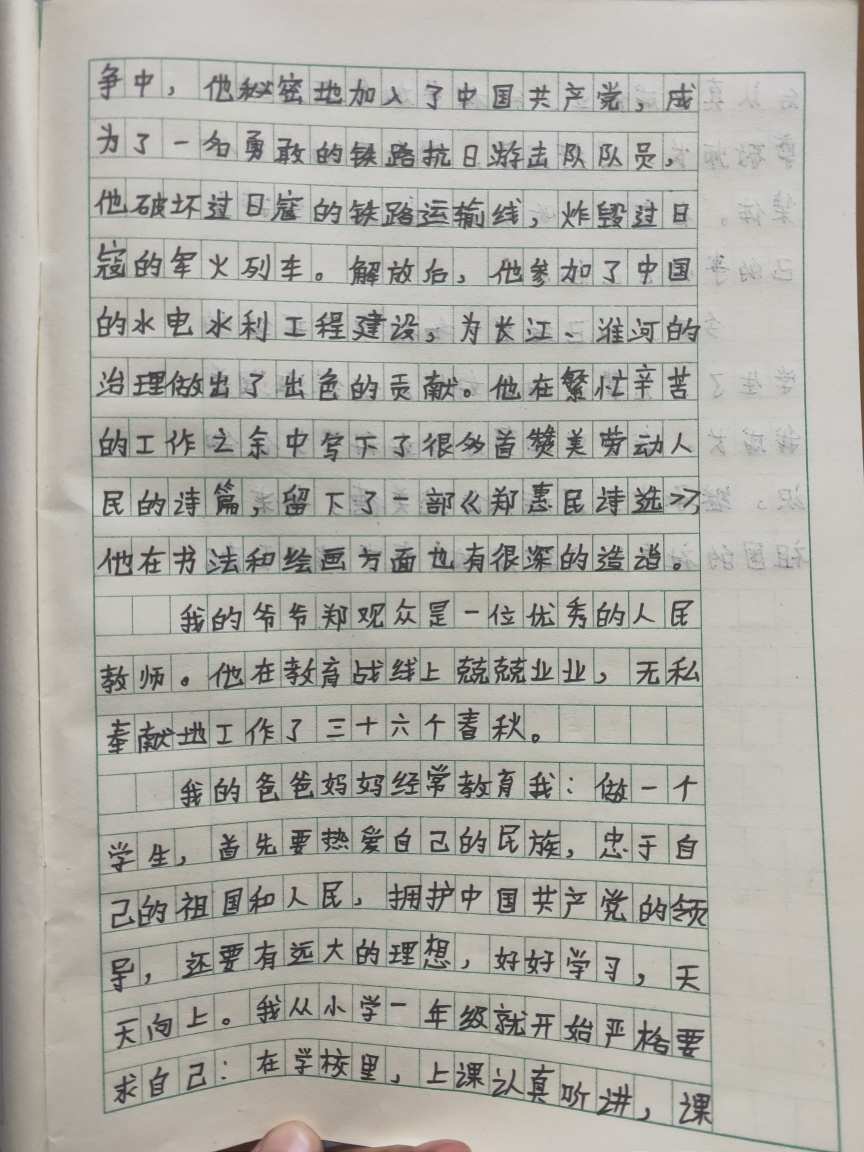 争中，他秘密地加入了中国共产党，成
为了一名勇敢的铁路抗日游击队队员，
他破坏过日寇的铁路运输线，炸毁过日
寇的军火列车。解放后，他参加了中国
的水电水利工程建设，为长江、淮河的
治理做出了出色的贡献。他在繁忙辛苦
的工作之余中写下了很多首赞美劳动人
民的诗篇，留下了一部《郑惠民诗选》，
他在书法和绘画方面也有很深的造诣。
我的爷爷郑观众是一位优秀的人民
教师。他在教育战线上兢兢业业，无私
奉献地工作了三十六个春秋。
我的爸爸妈妈经常教育我：做一个
学生，首先要热爱自己的民族，忠于自
己的祖国和人民，拥护中国共产党的领
导，还要有远大的理想，好好学习，天
天向上。我从小学一年级就开始严格要
求自己：在学校里，上课认真听讲，课